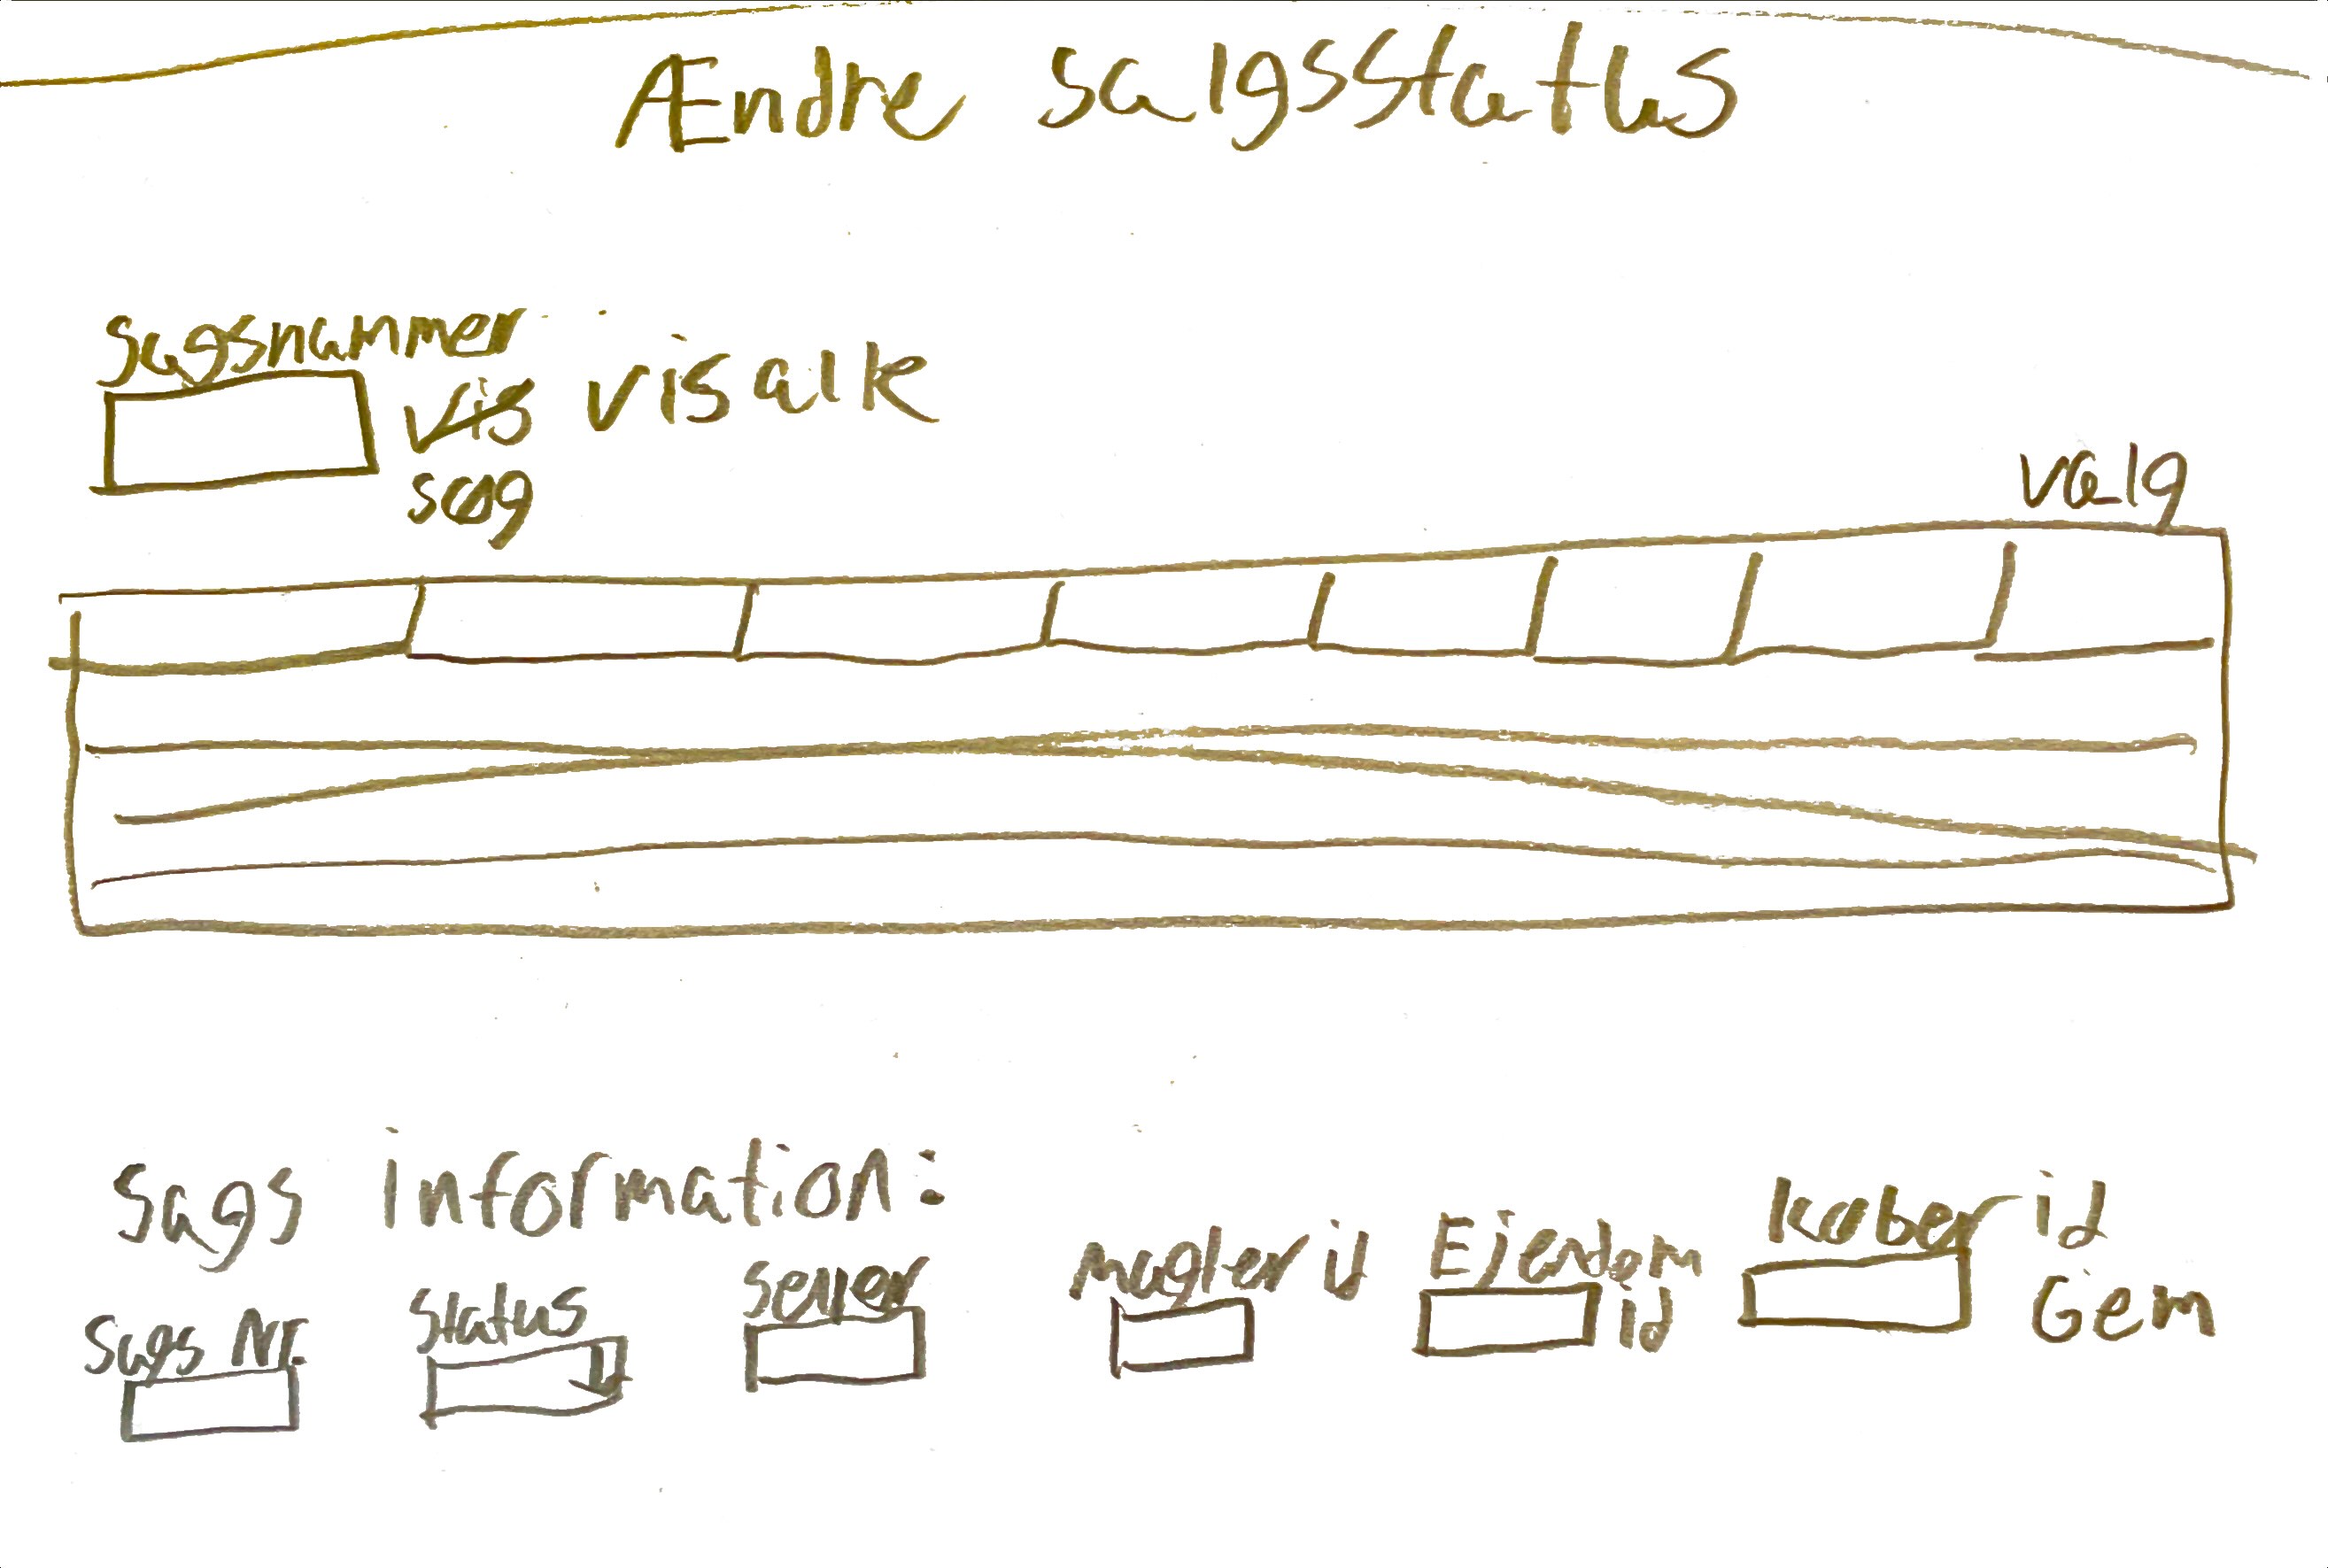 Ændre salgsstatus
sagsnummer
vis alk
søg
vælg
Sags information:
Sags Nr.
Status
Seller
Mægler id
Ejendom id
Køber id
Gem